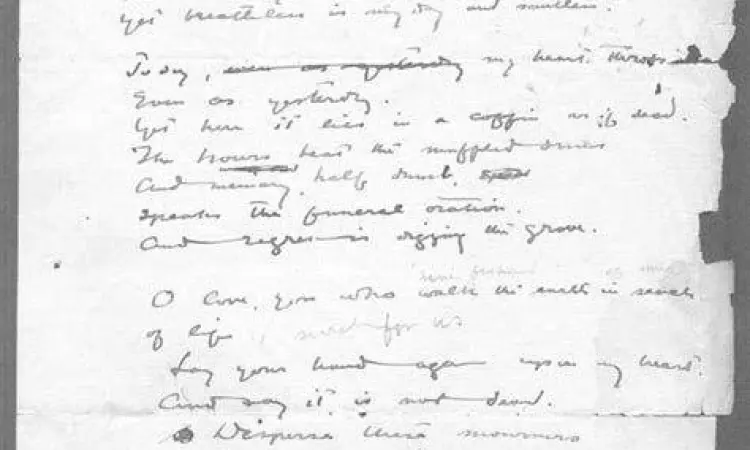 Yet breathless is my day and soulless.
Today, even as yesterday my heart throbs
Even as yesterday.
Yet here it lies in a coffin as if dead.
The hours beat the muffled drums
And memory, half drunk,
speaks the funeral oration.
And regret is digging the grave.
O love, you who walk the earth in search
of life
Lay your hand again upon my heart.
And say it is not dead.
Disperse these mourners